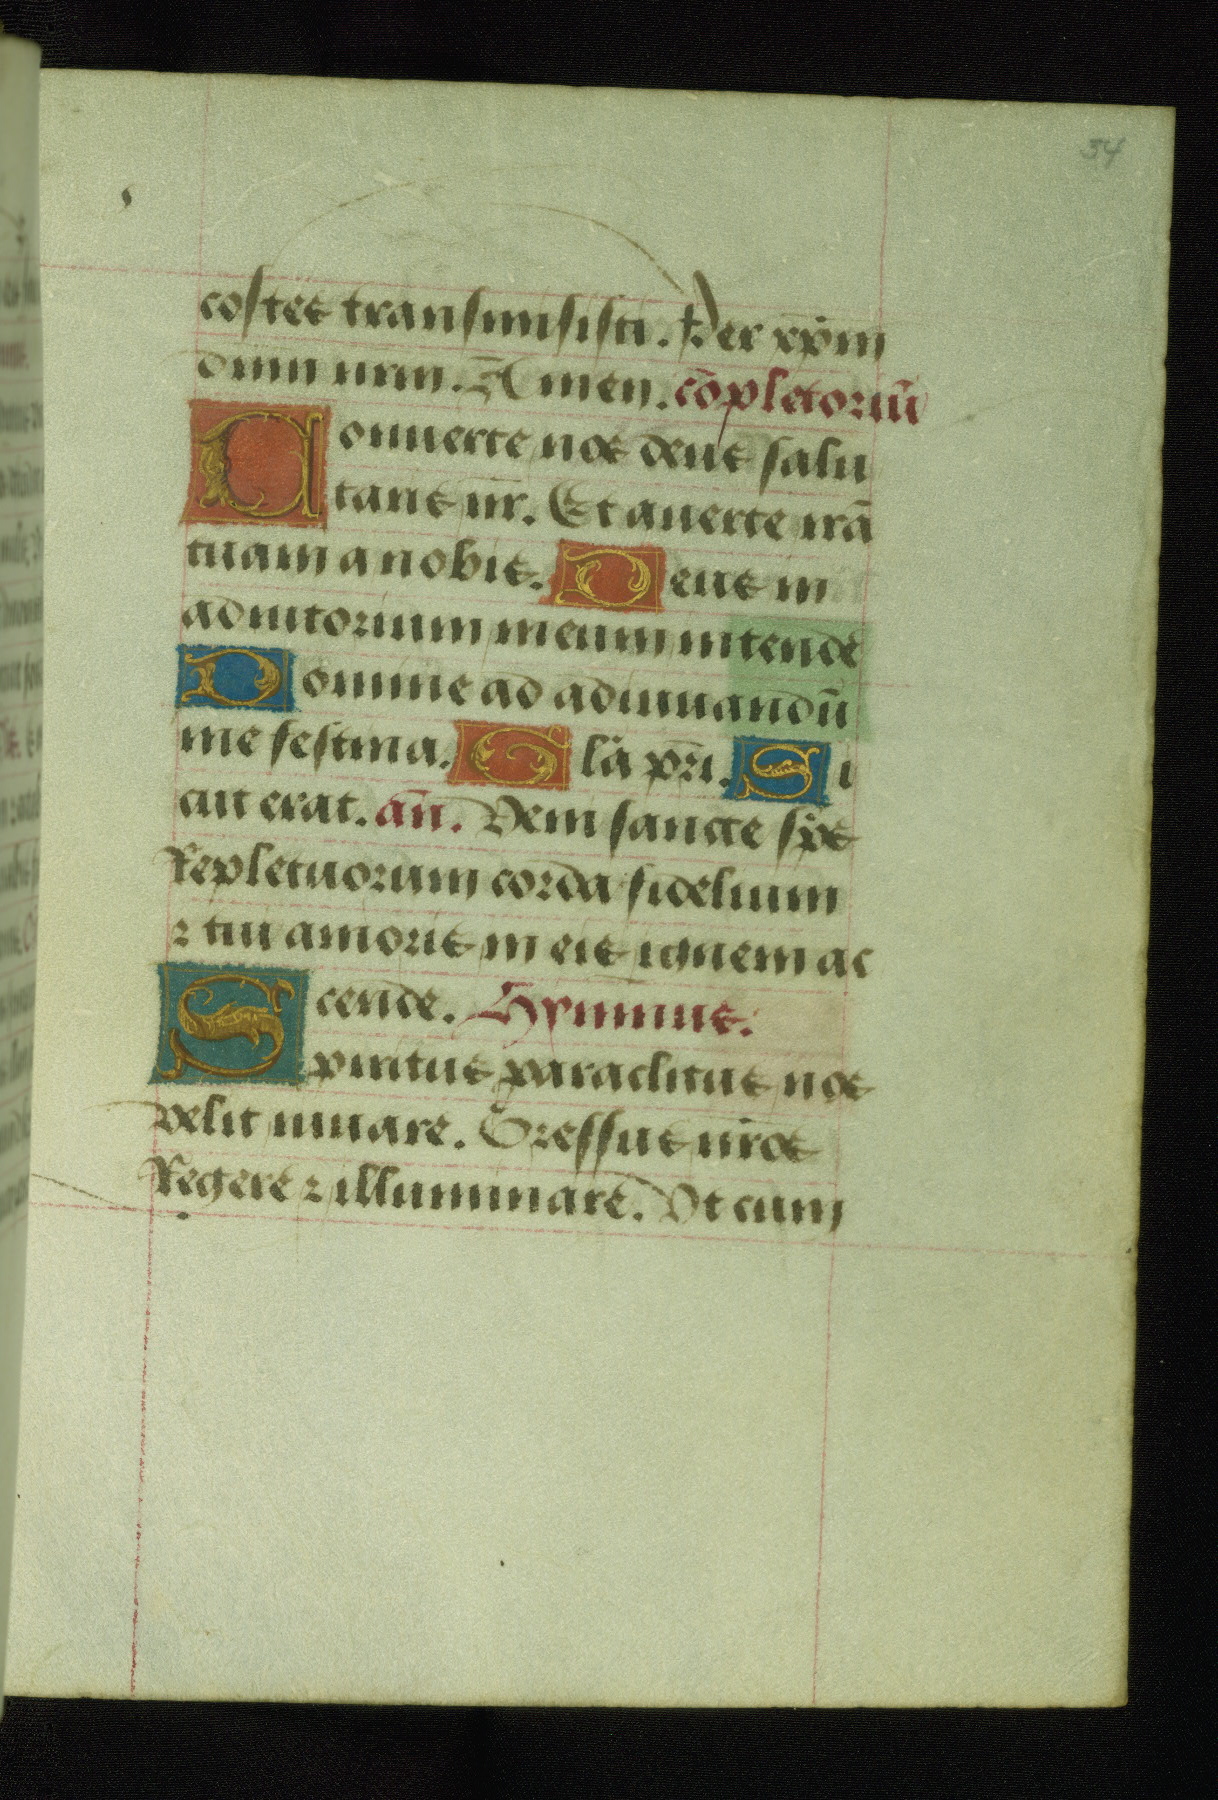 34
costes transmisisti. Per xp̄m
dnm nrm. Amen. cōpletoriū
Conuerte nos deus salu
taris nr̄. Et auerte irā
tuam a nobis. Deus in
adiutorium meum intende
Domine ad adiuuandū
me festina. Glā pr̄i. Si
cut erat. an̄. Veni sancte sp̄s
Reple tuorum corda fidelium
⁊ tui amoris in eis ignem ac
cende. Hymnus.
Spiritus paraclitus nos
velit iuuare. Gressus nr̄os
Regere ⁊ illuminare. Vt cum